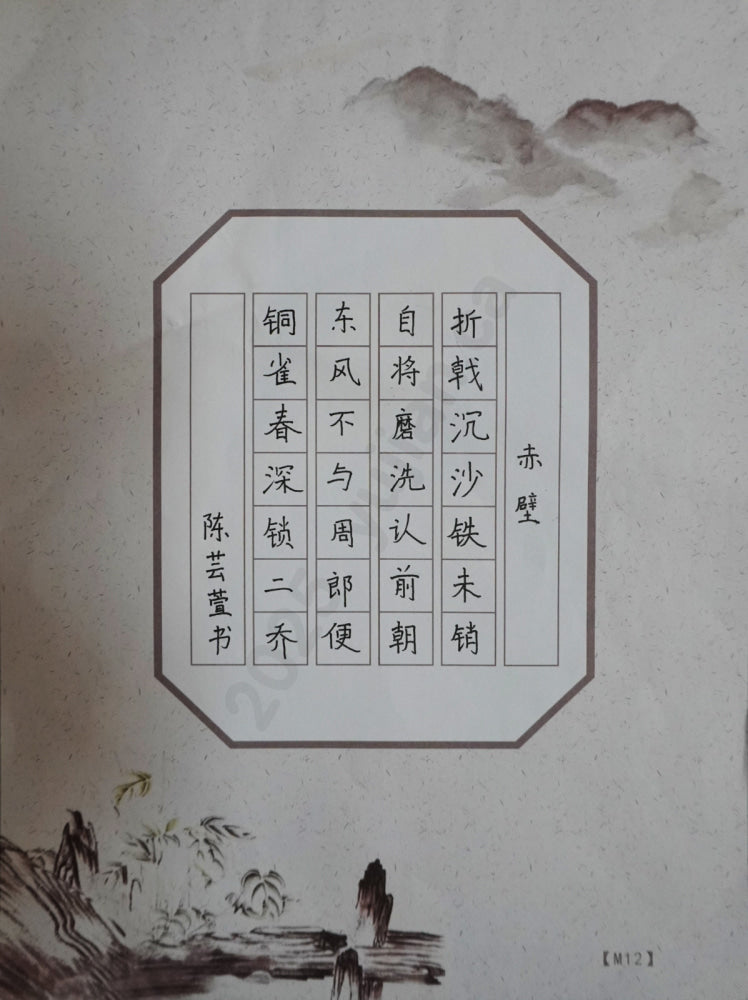 赤壁
折戟沉沙铁未销
自将磨洗认前朝
东风不与周郎便
铜雀春深锁二乔
陈芸萱书
【M12】